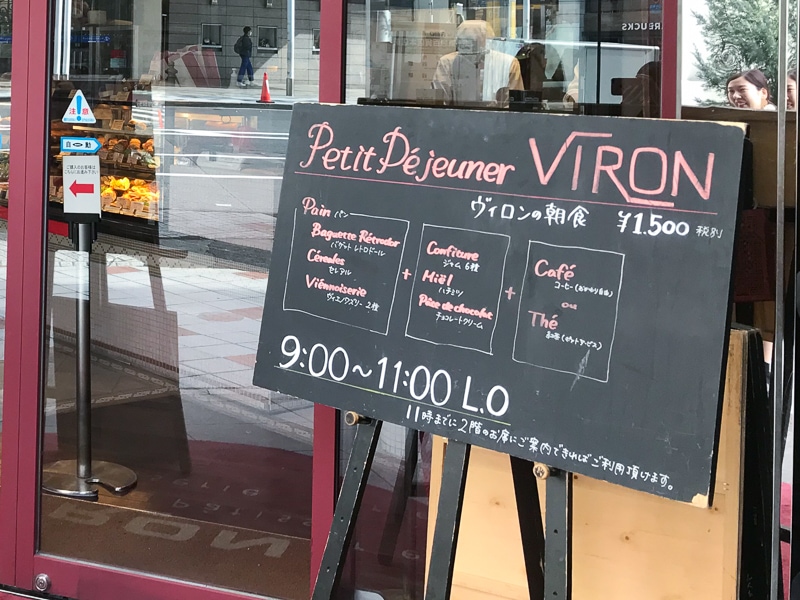 Petit Déjeuner VIRON
ヴィロンの朝食 ¥1.500 税別
Pain パン
Baguette Rétrodor
バゲット レトロドール
Céreales
セレアル
Viennoiserie
ヴィエノワズリー 2種
+
Confiture
ジャム 6種
Miel
ハチミツ
Pâte de chocolat
チョコレートクリーム
+
Café
コーヒー(おかわり自由)
ou
Thé
紅茶(ポットサービス)
9:00~11:00 L.O
11時までに2階のお席にご案内できればご利用頂けます。
注意
自動
ご購入のお客様は
こちらにお進み下さい